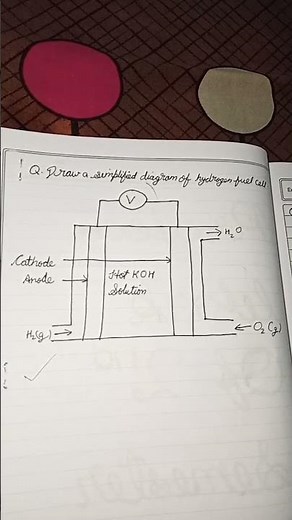 Q. Draw a simplified diagram of hydrogen-fuel cell
V
H₂O
Cathode
Anode
Hot KOH
Solution
H₂(g)
O₂(g)